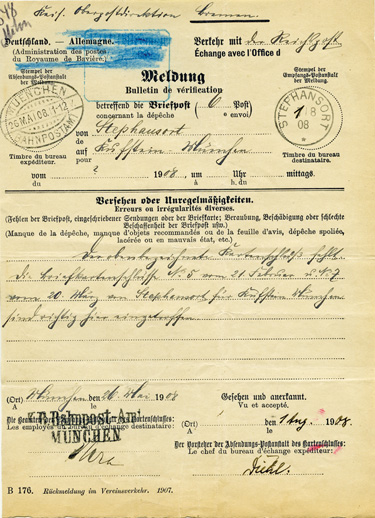 Kais. Oberpostdirektion Bremen.
Deutschland. — Allemagne.
(Administration des postes
du Royaume de Bavière.)
Verkehr mit der Reichspost
Échange avec l'Office d
Stempel der
Absendungs-Postanstalt
der Meldung.
Stempel der
Empfangs-Postanstalt
der Meldung.
Meldung
Bulletin de vérification
MUENCHEN
26 MAI 08. 1-12
BAHNPOSTAMT
betreffend die Briefpost ( 6 Post)
concernant la dépêche e envoi)
STEPHANSORT
1 8
08
von Stephansort
de
auf Kufstein-München
pour
Timbre du bureau
expéditeur.
Timbre du bureau
destinataire.
vom ? 1908, um Uhr mittags.
du à h. m.
Versehen oder Unregelmäßigkeiten.
Erreurs ou irrégularités diverses.
(Fehlen der Briefpost, eingeschriebener Sendungen oder der Briefkarte; Beraubung, Beschädigung oder schlechte
Beschaffenheit der Briefpost usw.)
(Manque de la dépêche, manque d'objets recommandés ou de la feuille d'avis, dépêche spoliée,
lacérée ou en mauvais état, etc.)
Der obenbezeichnete Kartenschluß fehlt.
Die Briefkartenschlüsse No 5 vom 21. Februar u. No 7
vom 20. März von Stephansort für Kufstein München
sind richtig hier eingetroffen.
(Ort) München den 26 Mai 1908
A le
Gesehen und anerkannt.
Vu et accepté.
K.B. Bahnpost-Amt
MÜNCHEN
Die Beamten des Kartenschlusses:
Les employés du bureau d'échange destinataire:
(Ort) den 1 Aug. 1908.
A le
Der Vorsteher der Absendungs-Postanstalt des Kartenschlusses:
Le chef du bureau d'échange expéditeur:
Diehl.
B 176. Rückmeldung im Vereinsverkehr. 1907.